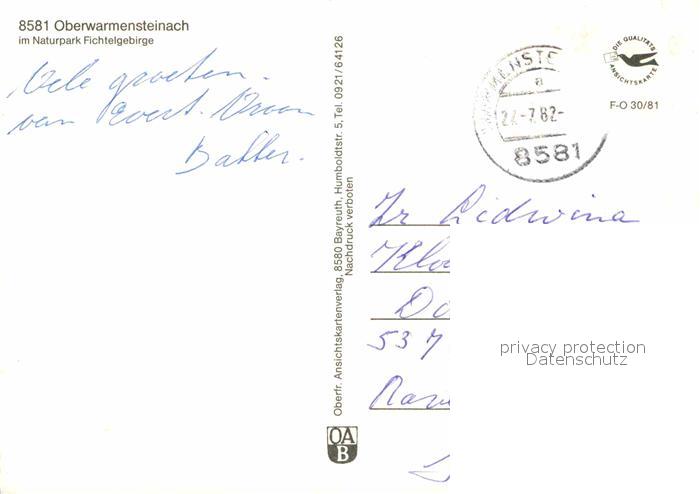 8581 Oberwarmensteinach
im Naturpark Fichtelgebirge
Vele groeten.
van Evert.
Bakker.
Oberfr. Ansichtskartenverlag, 8580 Bayreuth, Humboldtstr. 5, Tel. 0921/64126
Nachdruck verboten
OA
B
MENSTE
a
-7.82-
8581
DIE QUALITÄTS
ANSICHTSKARTE
F-O 30/81
Zr Lidwina
Klo
Do
537
privacy protection
Datenschutz